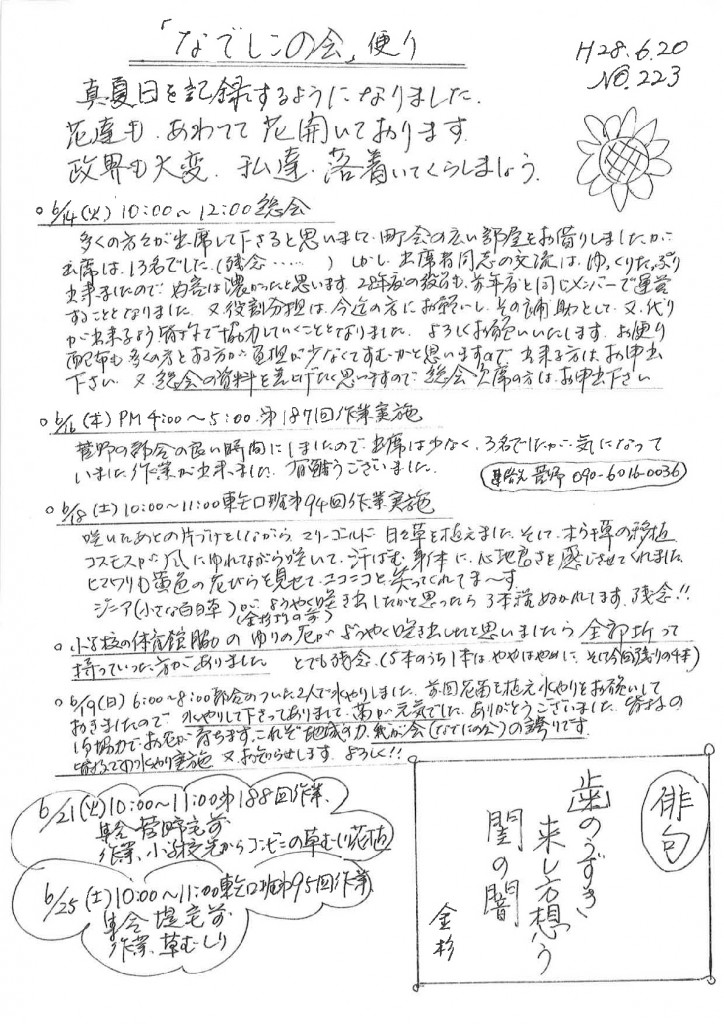 「なでしこの会」便り
H28.6.20
NO.223
真夏日を記録するようになりました。
花達も、あわてて花開いております。
政界も大変、私達、落着いてくらしましょう。
○6/14(火)10:00～12:00総会
多くの方々が出席して下さると思いまして、町会の広い部屋をお借りしましたが、
出席は、13名でした。(残念……)しかし出席者同志の交流は、ゆっくりたっぷり
出来ましたので、内容は濃かったと思います。28年度の役員も、前年度と同じメンバーで運営
することとなりました。又、役割分担は、今迄の方にお願いし、その補助として、又、代り
が出来るよう皆々で協力していくこととなりました。よろしくお願いいたします。お便り
配布も多くの方とする方が負担が少なくてすむかと思いますので、出来る方は、お申出
下さい。又、総会の資料を差し上げたく思いますので、総会欠席の方は、お申出下さい
○6/16(木)PM4:00～5:00.第187回作業実施
菅野の都合の良い時間にしましたので、出席は少なく、3名でしたが、気になって
いました作業が出来ました。有難うございました。
連絡先 菅野 090-6016-0036
○6/18(土)10:00～11:00東仁口班第94回作業実施
咲いたあとの片づけをしながら、マリーゴールド、日々草を植えました。そして、本う千草の移植
コスモスが風にゆれながら咲いて、汗ばむ身体に、心地良さを感じさせてくれました。
ヒマワリも黄色の花びらを見せて、ニコニコと笑ってくれてま～す。
ジニア(小さな百日草)がようやく咲き出したかと思ったら3本位ぬかれてます。残念!!
(金杉様の前)
○小学校の体育館脇のゆりの花がようやく咲き出したと思いましたら全部折って
持っていった方がありました とても残念。(5本のうち1本は、ややはやめに、そして今回残りの4本)
○6/19(日)6:00～8:00都合のついた2人で水やりしました。前回花苗を植え水やりをお願いして
おきましたので 水やりして下さってありまして、苗が元気でした。ありがとうございました。皆さまの
ご協力でお花が育ちます。これぞ地域の力、我が会(なでしこの会)の誇りです。
皆さまでの水やり実施、又お知らせします。よろしく!!
6/21(火)10:00～11:00第188回作業、
集合 菅野宅前
作業、小学校先からコンビニの草むしり花植
6/25(土)10:00～11:00東仁口班第95回作業
集合 堤宅前
作業、草むしり
俳句
歯のうずき、
来し方想う
闇の闇
金杉